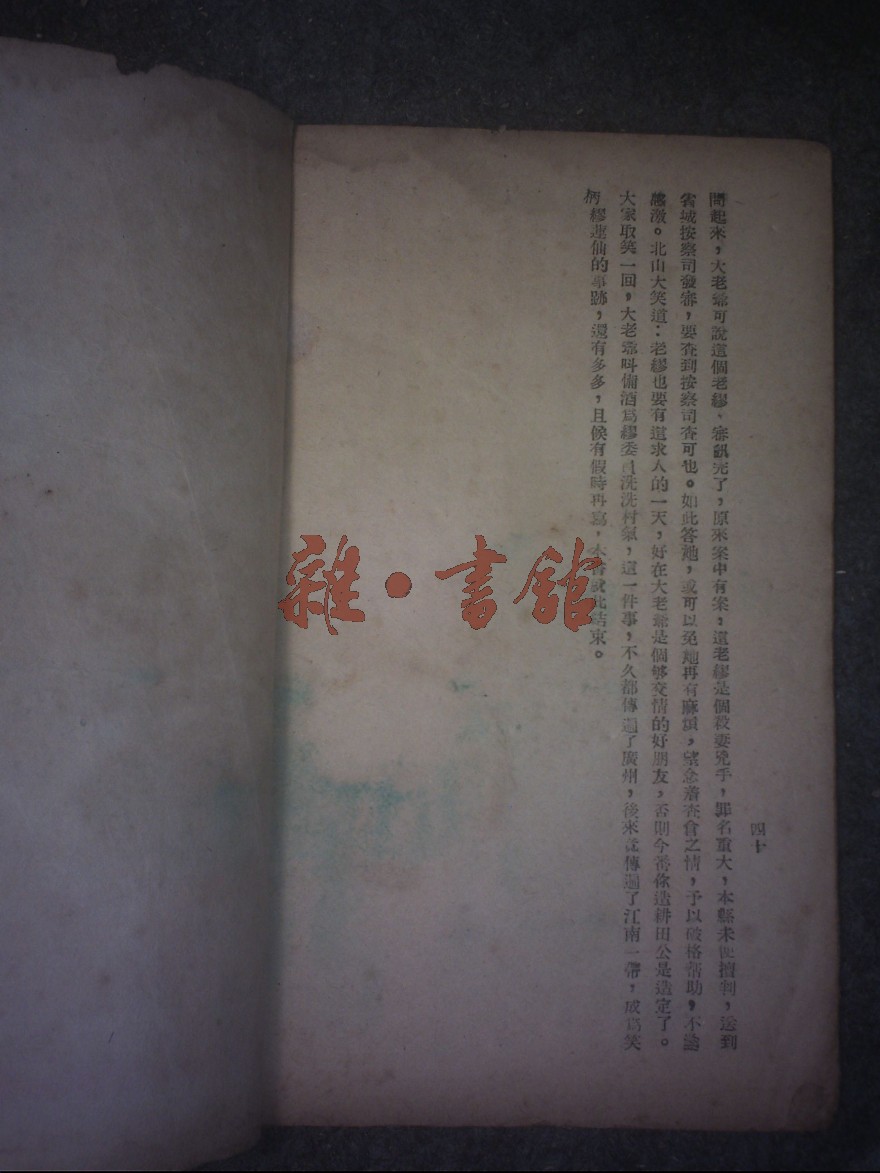 問起來，大老爺可說這個老繆、審訊完了，原來案中有案，這老繆是個殺妻兇手，罪名重大，本縣未便擅判，送到
省城按察司發審，要查到按察司查可也。如此答她，或可以免她再有麻煩，望念着查食之情，予以破格幫助，不
感激。北山大笑道：老繆也要有這求人的一天，好在大老爺是個够交情的好朋友，否則今番你這耕田公是造定了。
大家取笑一回，大老爺叫備酒爲繆委員洗洗村氣，這一件事，不久都傳遍了廣州，後來竟傳遍了江南一帶，成爲笑
柄繆蓮仙的事跡，還有多多，且候有假時再寫，本書就此結束。
四十
雜·書館